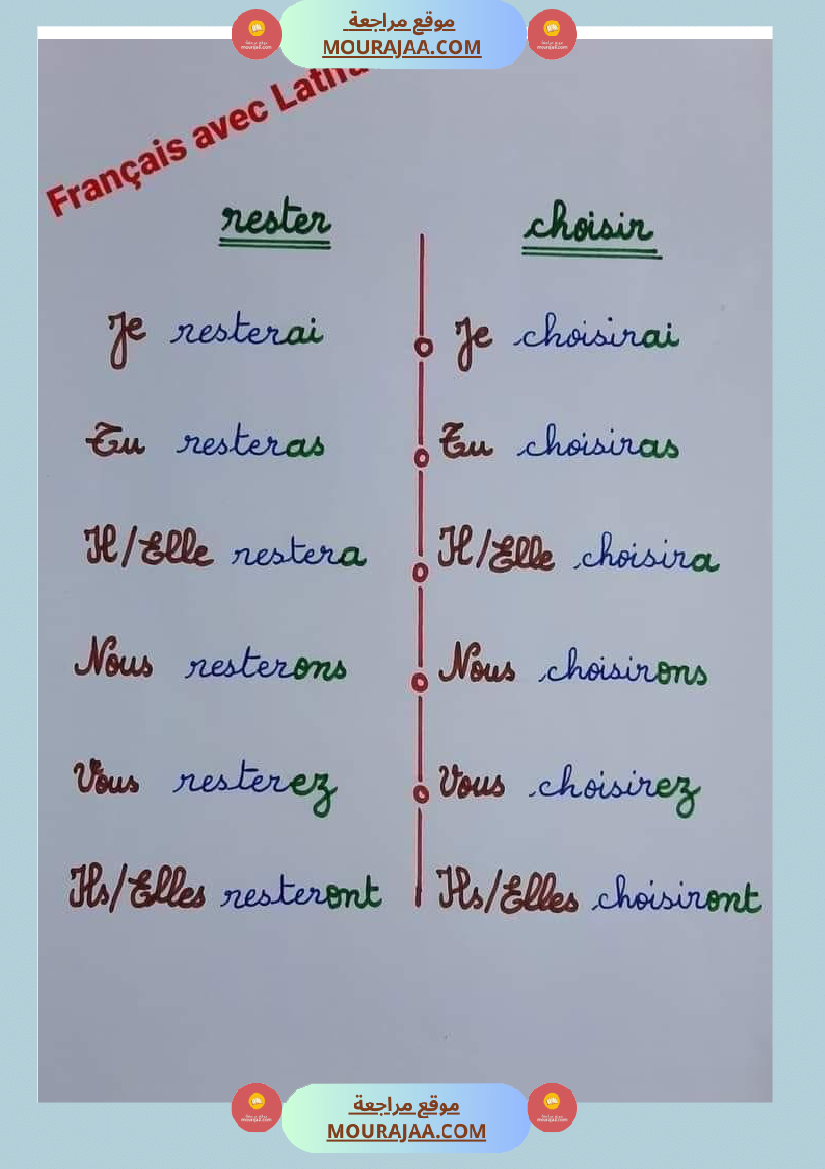 موقع مراجعة
MOURAJAA.COM
Français avec
rester
Je resterai
Tu resteras
Il/Elle restera
Nous resterons
Vous resterez
Ils/Elles resteront
choisir
Je choisirai
Tu choisiras
Il/Elle choisira
Nous choisirons
Vous choisirez
Ils/Elles choisiront
موقع مراجعة
MOURAJAA.COM